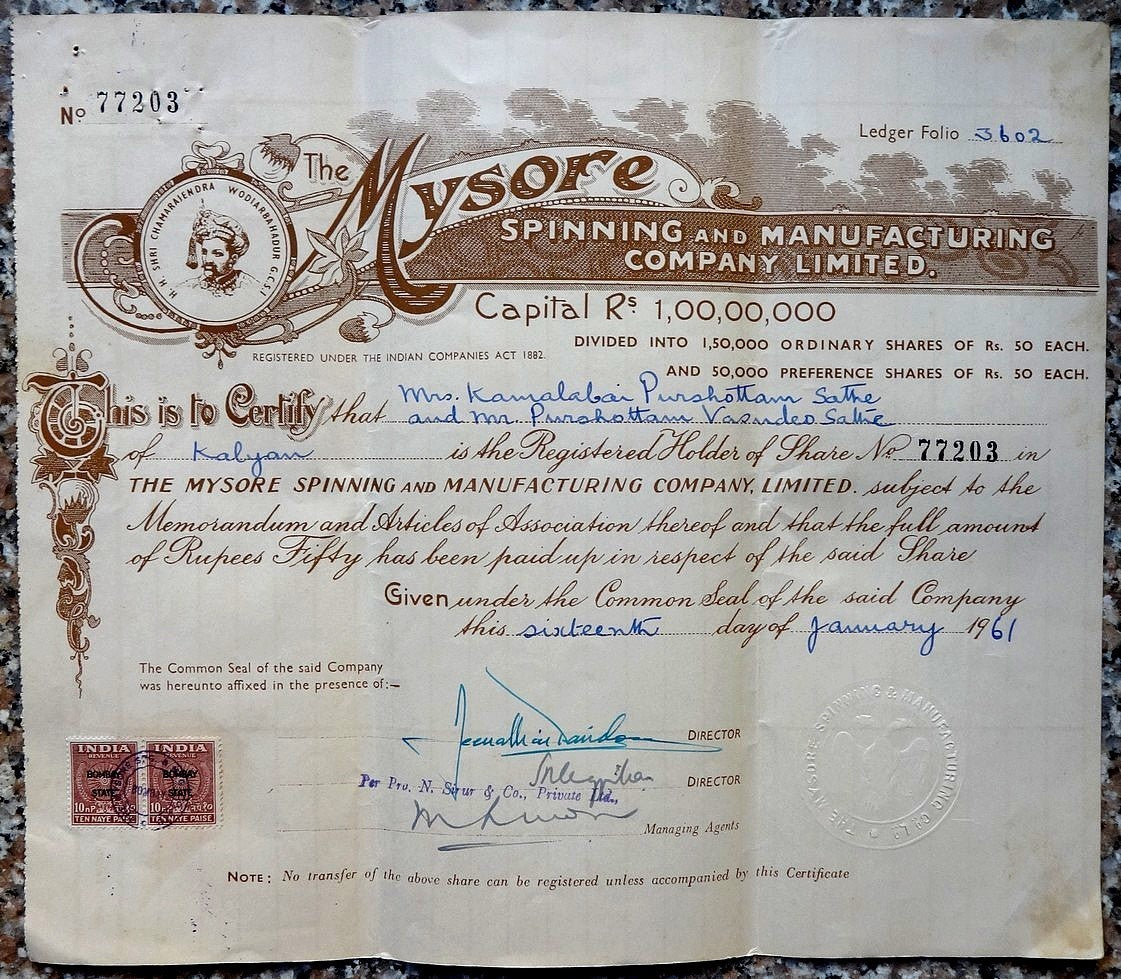 No 77203
Ledger Folio 3602
H. H. SHRI CHAMARAJENDRA WODIARBAHADUR G.C.S.I
The Mysore
SPINNING AND MANUFACTURING
COMPANY LIMITED.
Capital Rs. 1,00,00,000
DIVIDED INTO 1,50,000 ORDINARY SHARES OF Rs. 50 EACH.
REGISTERED UNDER THE INDIAN COMPANIES ACT 1882.
AND 50,000 PREFERENCE SHARES OF Rs. 50 EACH.
This is to Certify that Mrs. Kamalabai Purshottam Sathe
and Mr. Purshottam Vasudeo Sathe
of Kalyan is the Registered Holder of Share No 77203 in
THE MYSORE SPINNING AND MANUFACTURING COMPANY, LIMITED. subject to the
Memorandum and Articles of Association thereof and that the full amount
of Rupees Fifty has been paid up in respect of the said Share
Given under the Common Seal of the said Company
this sixteenth day of January 1961
The Common Seal of the said Company
was hereunto affixed in the presence of:—
DIRECTOR
DIRECTOR
Per Pro. N. Sirur & Co., Private Ltd.,
Managing Agents
INDIA INDIA
REVENUE REVENUE
BOMBAY BOMBAY
STATE STATE
TEN NAYE PAISE TEN NAYE PAISE
THE MYSORE SPINNING & MANUFACTURING CO. LD
NOTE: No transfer of the above share can be registered unless accompanied by this Certificate